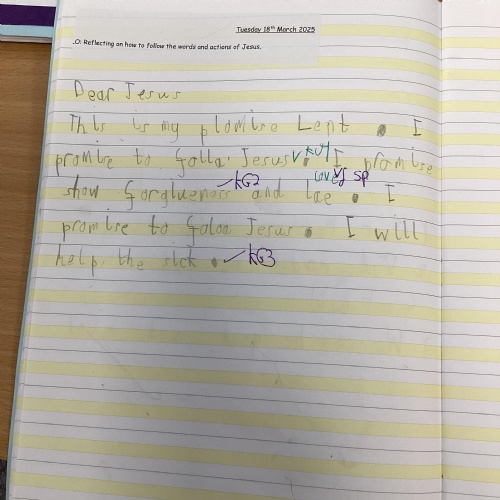 Tuesday 18th March 2025
.O: Reflecting on how to follow the words and actions of Jesus.
Dear Jesus
This is my plomise Lent . I
promise to folla Jesus . I promise
love sp
show forgiueness KG2 and lae . I
promise to foloa Jesus . I will
help the sick . KG3